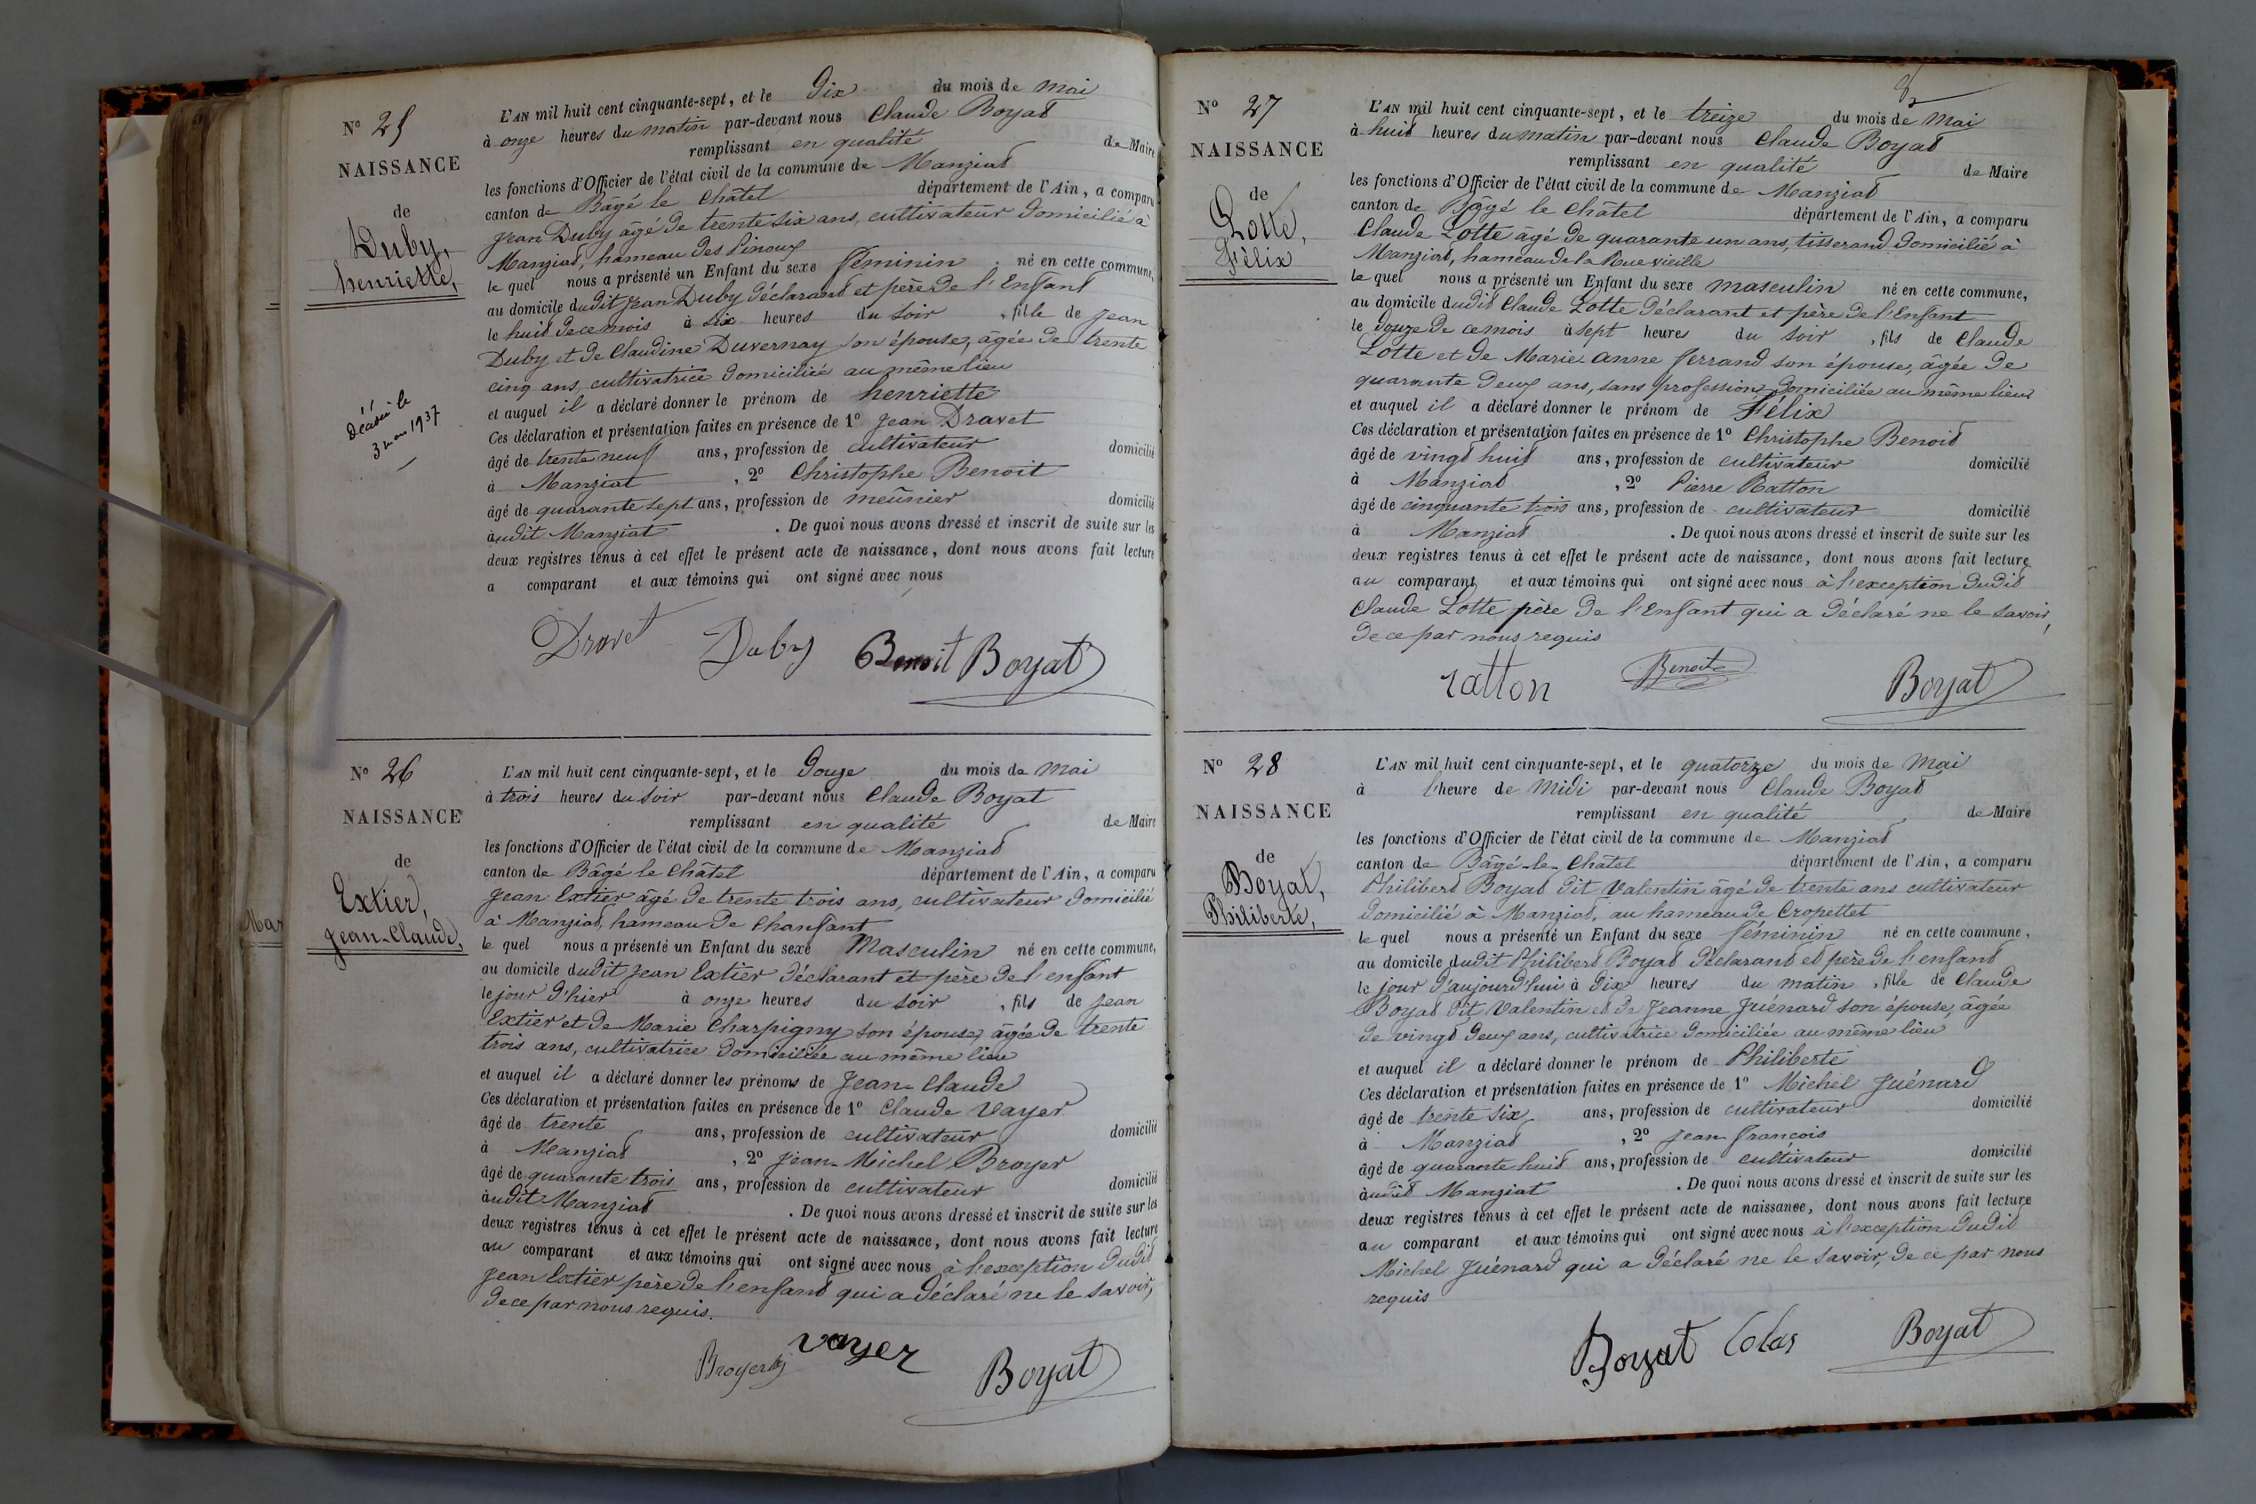 N° 25
NAISSANCE
de
Duby,
henriette,
Décédée le
3 mai 1937
L'AN mil huit cent cinquante-sept, et le Dix du mois de Mai
à onze heures du matin par-devant nous Claude Boyat
remplissant en qualité de Maire
les fonctions d'Officier de l'état civil de la commune de Manziat
canton de Bâgé le Châtel département de l'Ain, a comparu
Jean Duby âgé de trente six ans, cultivateur domicilié à
Manziat, hameau des Pinoux
le quel nous a présenté un Enfant du sexe féminin né en cette commune,
au domicile dudit Jean Duby déclarant et père de l'Enfant
le huit de ce mois à six heures du soir, fille de Jean
Duby et de Claudine Duvernay son épouse, âgée de trente
cinq ans, cultivatrice domiciliée au même lieu
et auquel il a déclaré donner le prénom de henriette
Ces déclaration et présentation faites en présence de 1° Jean Dravet
âgé de trente neuf ans, profession de cultivateur domicilié
à Manziat, 2° Christophe Benoit
âgé de quarante sept ans, profession de meûnier domicilié
audit Manziat. De quoi nous avons dressé et inscrit de suite sur les
deux registres tenus à cet effet le présent acte de naissance, dont nous avons fait lecture
a comparant et aux témoins qui ont signé avec nous
Dravet Duby Benoit Boyat
N° 26
NAISSANCE
de
Extier,
Jean-Claude,
L'AN mil huit cent cinquante-sept, et le Douze du mois de Mai
à trois heures du soir par-devant nous Claude Boyat
remplissant en qualité de Maire
les fonctions d'Officier de l'état civil de la commune de Manziat
canton de Bâgé le Châtel département de l'Ain, a comparu
Jean Extier âgé de trente trois ans, cultivateur domicilié
à Manziat, hameau de Chanfant
le quel nous a présenté un Enfant du sexe Masculin né en cette commune,
au domicile dudit Jean Extier déclarant et père de l'enfant
le jour d'hier à onze heures du soir, fils de Jean
Extier et de Marie Charpigny son épouse, âgée de trente
trois ans, cultivatrice domiciliée au même lieu
et auquel il a déclaré donner les prénoms de Jean-Claude
Ces déclaration et présentation faites en présence de 1° Claude Vayer
âgé de trente ans, profession de cultivateur domicilié
à Manziat, 2° Jean-Michel Broyer
âgé de quarante trois ans, profession de cultivateur domicilié
audit Manziat. De quoi nous avons dressé et inscrit de suite sur les
deux registres tenus à cet effet le présent acte de naissance, dont nous avons fait lecture
au comparant et aux témoins qui ont signé avec nous à l'exception dudit
Jean Extier père de l'enfant qui a déclaré ne le savoir,
de ce par nous requis.
Broyer vayer Boyat
Mar
N° 27
NAISSANCE
de
Lotte,
Félix
L'AN mil huit cent cinquante-sept, et le treize du mois de Mai
à huit heures du matin par-devant nous Claude Boyat
remplissant en qualité de Maire
les fonctions d'Officier de l'état civil de la commune de Manziat
canton de Bâgé le Châtel département de l'Ain, a comparu
Claude Lotte âgé de quarante un ans, tisserand domicilié à
Manziat, hameau de la Rue vieille
le quel nous a présenté un Enfant du sexe masculin né en cette commune,
au domicile dudit Claude Lotte déclarant et père de l'Enfant
le douze de ce mois à sept heures du soir, fils de Claude
Lotte et de Marie Anne Ferrand son épouse, âgée de
quarante deux ans, sans profession, domiciliée au même lieu
et auquel il a déclaré donner le prénom de Félix
Ces déclaration et présentation faites en présence de 1° Christophe Benoit
âgé de vingt huit ans, profession de cultivateur domicilié
à Manziat, 2° Pierre Ratton
âgé de cinquante trois ans, profession de cultivateur domicilié
à Manziat. De quoi nous avons dressé et inscrit de suite sur les
deux registres tenus à cet effet le présent acte de naissance, dont nous avons fait lecture
au comparant et aux témoins qui ont signé avec nous à l'exception dudit
Claude Lotte père de l'Enfant qui a déclaré ne le savoir,
de ce par nous requis
ratton Benoit Boyat
N° 28
NAISSANCE
de
Boyat,
Philiberte,
L'AN mil huit cent cinquante-sept, et le quatorze du mois de Mai
à l'heure de Midi par-devant nous Claude Boyat
remplissant en qualité de Maire
les fonctions d'Officier de l'état civil de la commune de Manziat
canton de Bâgé-le-Châtel département de l'Ain, a comparu
Philibert Boyat dit Valentin âgé de trente ans cultivateur
domicilié à Manziat, au hameau de Cropettet
le quel nous a présenté un Enfant du sexe féminin né en cette commune,
au domicile dudit Philibert Boyat déclarant et père de l'enfant
le jour d'aujourd'hui à dix heures du matin, fille de Claude
Boyat dit Valentin et de Jeanne Guénard son épouse, âgée
de vingt deux ans, cultivatrice domiciliée au même lieu
et auquel il a déclaré donner le prénom de Philiberte
Ces déclaration et présentation faites en présence de 1° Michel Guénard
âgé de trente six ans, profession de cultivateur domicilié
à Manziat, 2° Jean François
âgé de quarante huit ans, profession de cultivateur domicilié
audit Manziat. De quoi nous avons dressé et inscrit de suite sur les
deux registres tenus à cet effet le présent acte de naissance, dont nous avons fait lecture
au comparant et aux témoins qui ont signé avec nous à l'exception dudit
Michel Guénard qui a déclaré ne le savoir, de ce par nous
requis
Boyat Colas Boyat